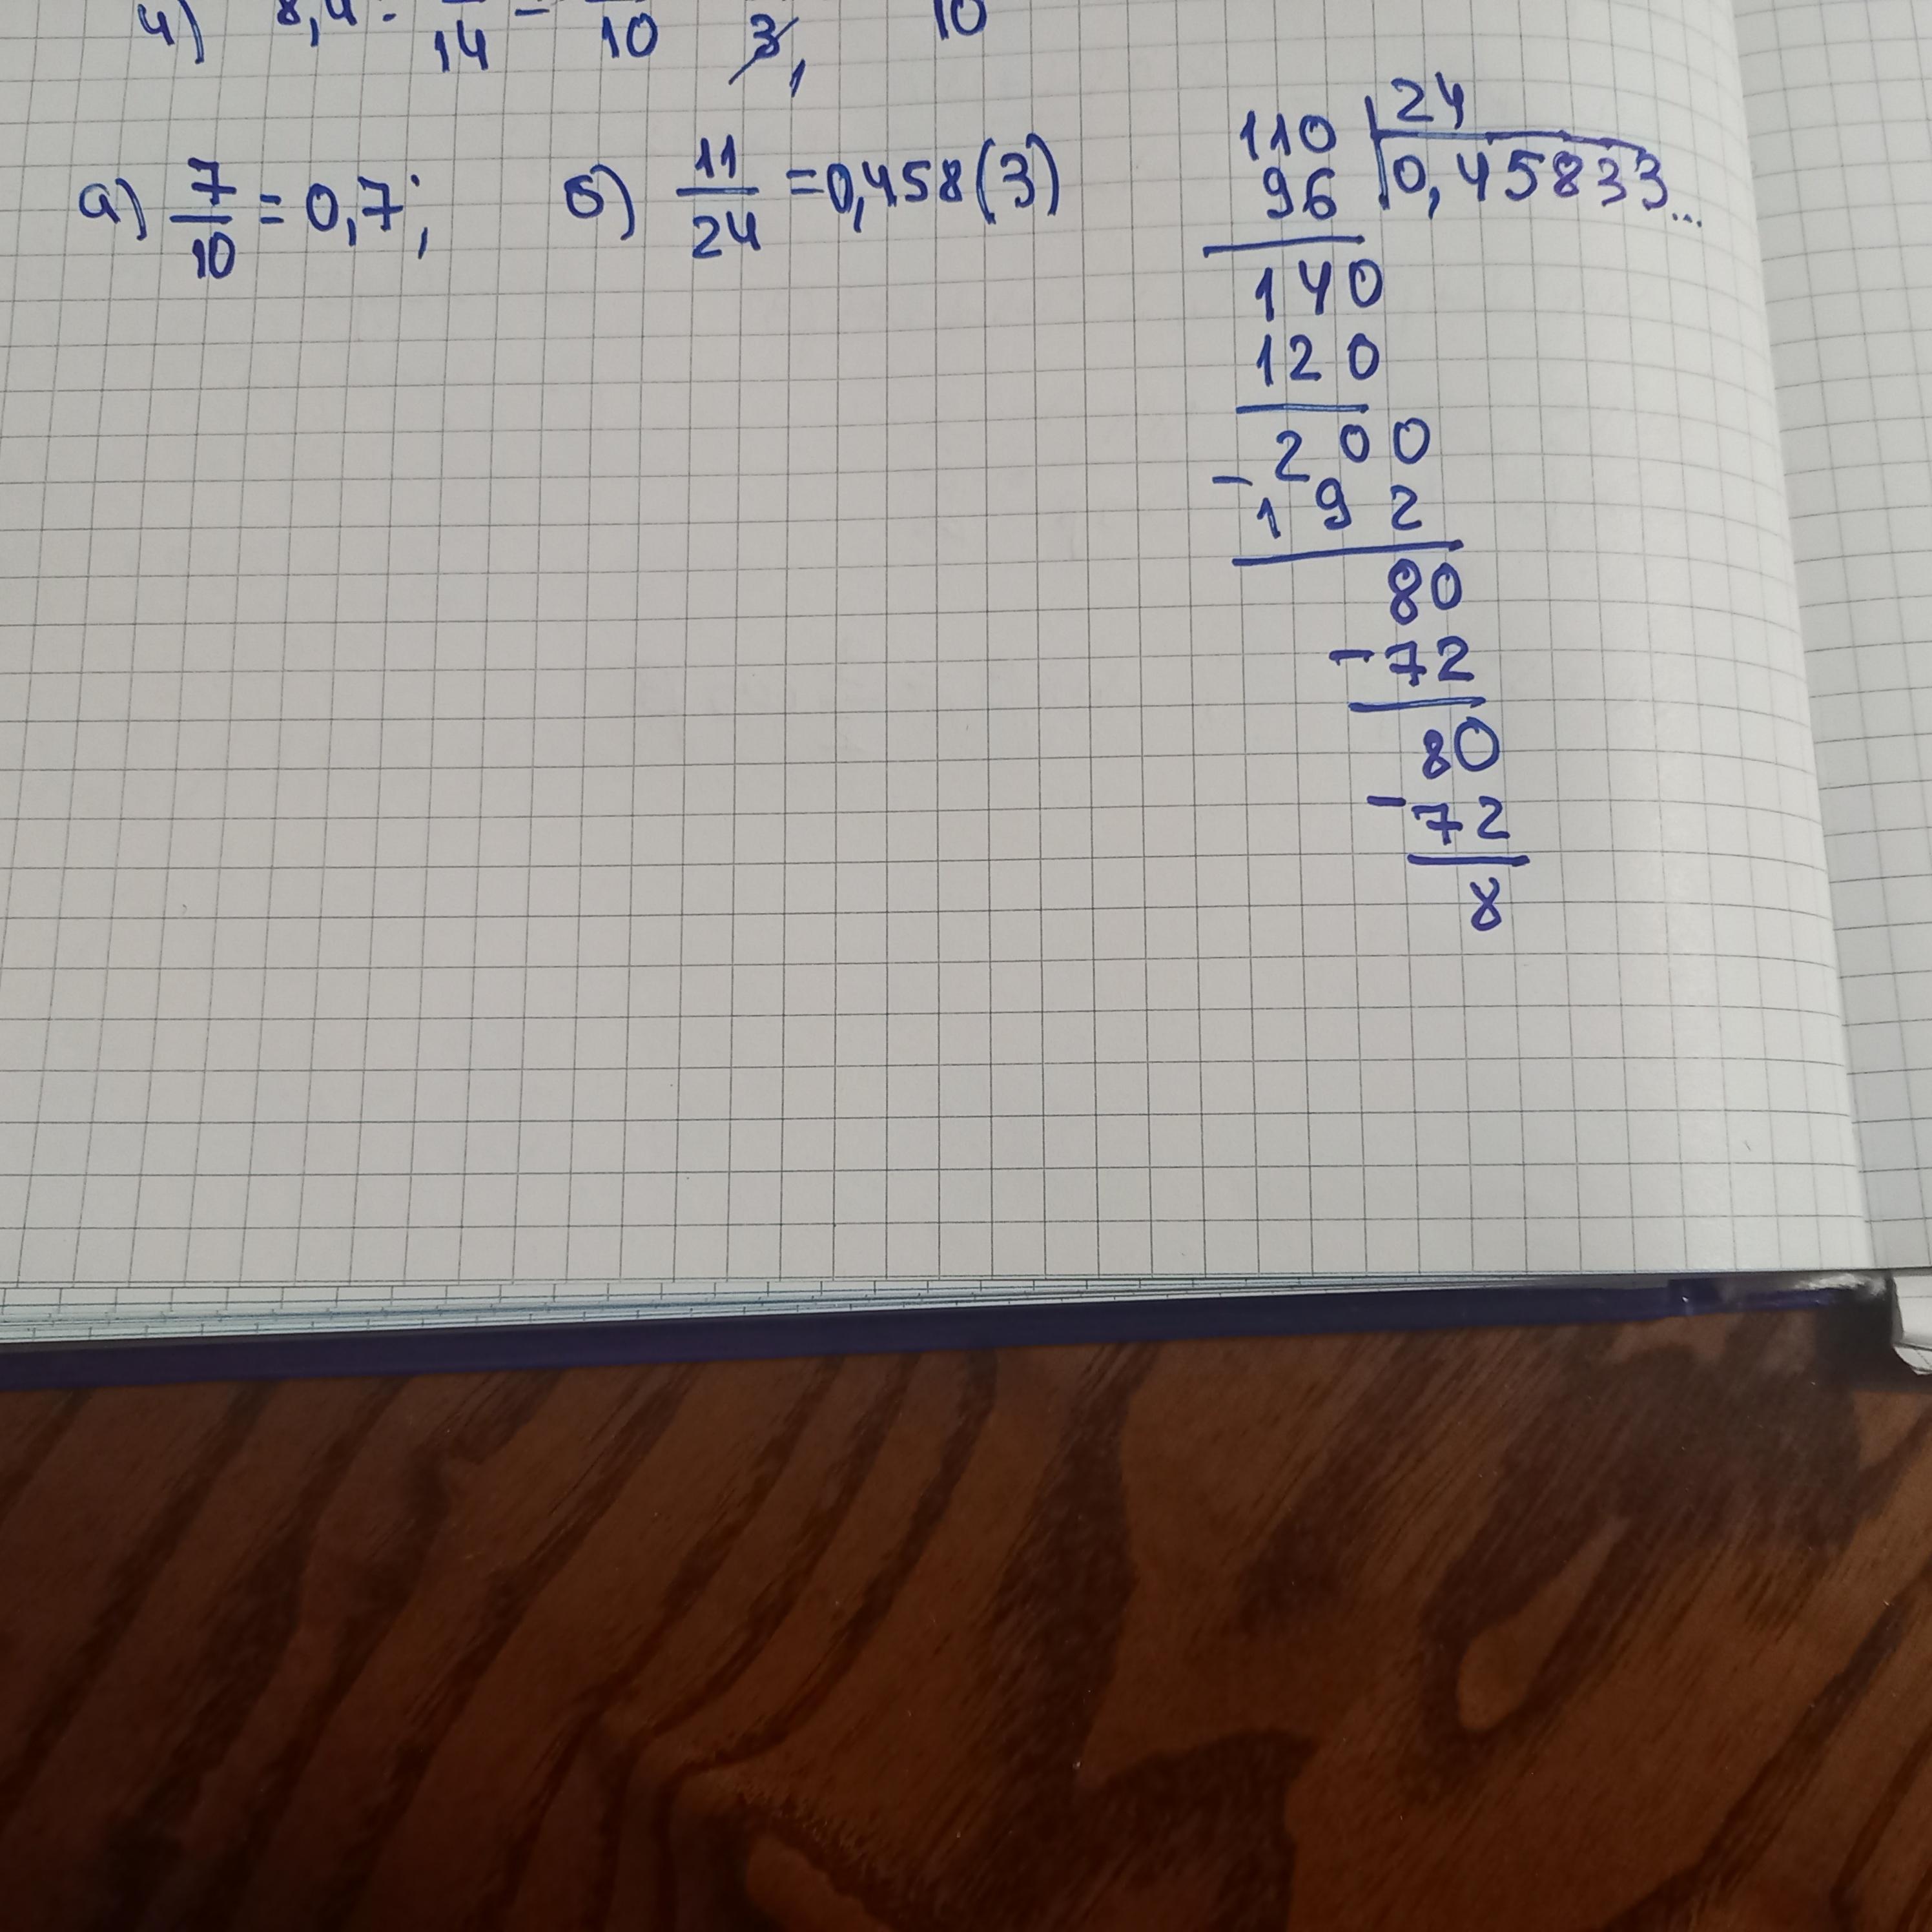 4) 8,4 : 14 = 10 3, 1 10
а) 7/10 = 0,7; б) 11/24 = 0,458(3)
110 | 24
96 | 0,45833...
140
120
200
- 192
80
- 72
80
- 72
8